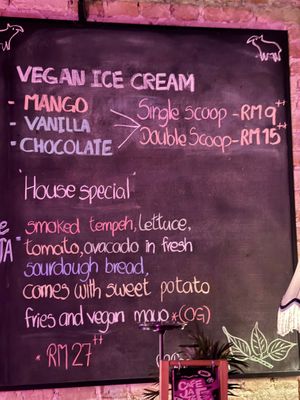 VEGAN ICE CREAM
- MANGO
- VANILLA
- CHOCOLATE
Single scoop - RM 9++
Double Scoop - RM 15++
'House special'
smoked tempeh, lettuce,
tomato, avacado in fresh
sourdough bread,
comes with sweet potato
fries and vegan mayo *(OG)
* RM 27++
CAFE